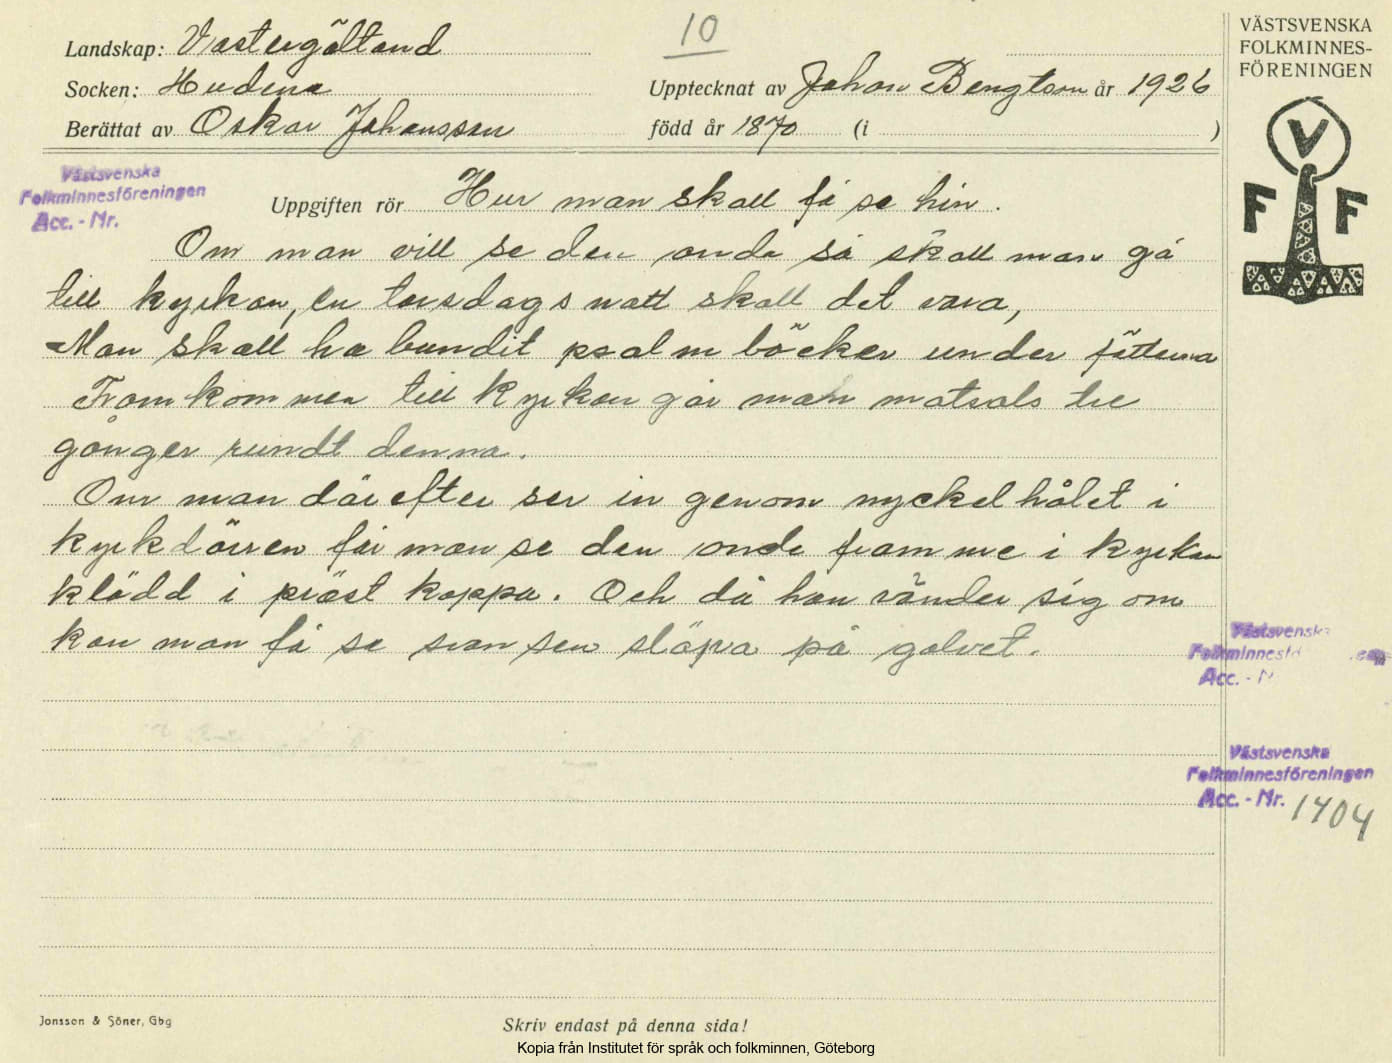 10
Landskap: Västergötland
Socken: Hudene
Upptecknat av Johan Bengtson år 1926
Berättat av Oskar Johansson
född år 1870 (i )
VÄSTSVENSKA
FOLKMINNES-
FÖRENINGEN
V
F F
Västsvenska
Folkminnesföreningen
Acc. - Nr.
Uppgiften rör Hur man skall få se hin.
Om man vill se den onde så skall man gå
till kyrkan, en torsdags natt skall det vara,
Man skall ha bundit psalm böcker under fötterna
Framkommen till kyrkan går man motsols tre
gånger rundt denna.
Om man därefter ser in genom nyckelhålet i
kyrkdörren får man se den onde framme i kyrkan
klädd i präst kappa. Och då han vänder sig om
kan man få se svansen släpa på golvet.
Västsvenska
Folkminnesfö
Acc. - N
Västsvenska
Folkminnesföreningen
Acc. - Nr. 1404
Jonsson & Söner, Gbg
Skriv endast på denna sida!
Kopia från Institutet för språk och folkminnen, Göteborg